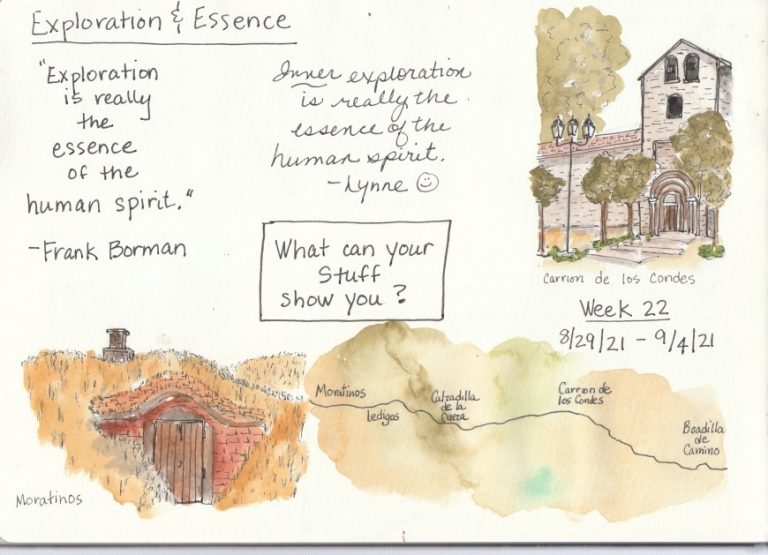 Exploration & Essence
"Exploration
is really
the
essence
of the
human spirit."
-Frank Borman
Inner exploration
is really the
essence of the
human spirit.
-Lynne ☺
What can your
Stuff
show you?
Carrion de los Condes
Week 22
8/29/21 - 9/4/21
Moratinos
Moratinos
Ledigos
Calzadilla
de la
Cueza
Carrion de
los Condes
Boadilla
de
Camino